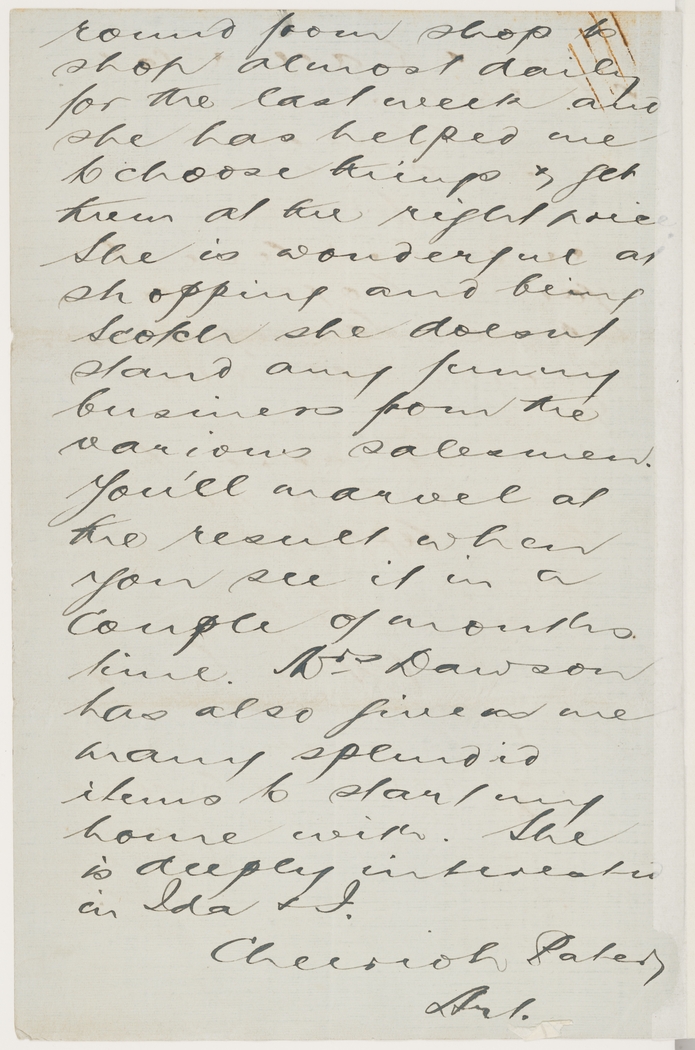 round from shop to
shop almost daily
for the last week and
she has helped me
to choose things & get
them at the right price
She is wonderful at
shopping and being
Scotch she doesnt
stand any funny
business from the
various salesmen.
You'll marvel at
the result when
you see it in a
couple of months
time. Mrs Dawson
has also given me
many splendid
items to start my
home with. She
is deeply interested
in Ida & I.
Cheerioh Pater,
Art.